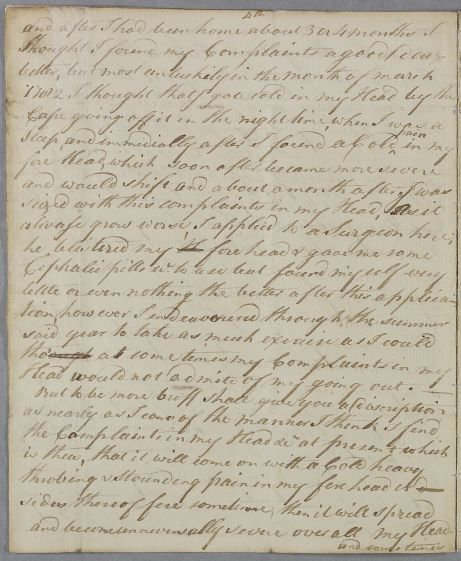 4th
and after I had been home about 3 or 4 months I
thought I found my Complaints a good deal
better, but most unluckily in the month of march
1782 I thought that I got cold in my Head by the
Cape going off it in the night time, when I was a
sleep and immedially after I found a Cold pain in my
fore Head, which soon after became more severe
and would shift and about a month after I was
seized with this complaints in my Head, As it
always grew worse I applied to a Surgeon here;
he blistered my fore head & gave me some
Cephalic pills &c to use but found myself very
little or even nothing the better after this applica-
tion, however I endeavoured through the summer
said year to take as much exercise as I could
tho at some times my Complaints in my
Head would not admite of my going out.
But to be more brieff I shall give you a discription
as nearly as I can of the manner I think I find
the Complaints in my Head &c at present which
is thus, that it will come on with a Cold heavy
throbing & Stounding pain in my fore head &
sides thereof sore sometimes, then it will spread
and become unniversally severe over all my Head
and sometimes